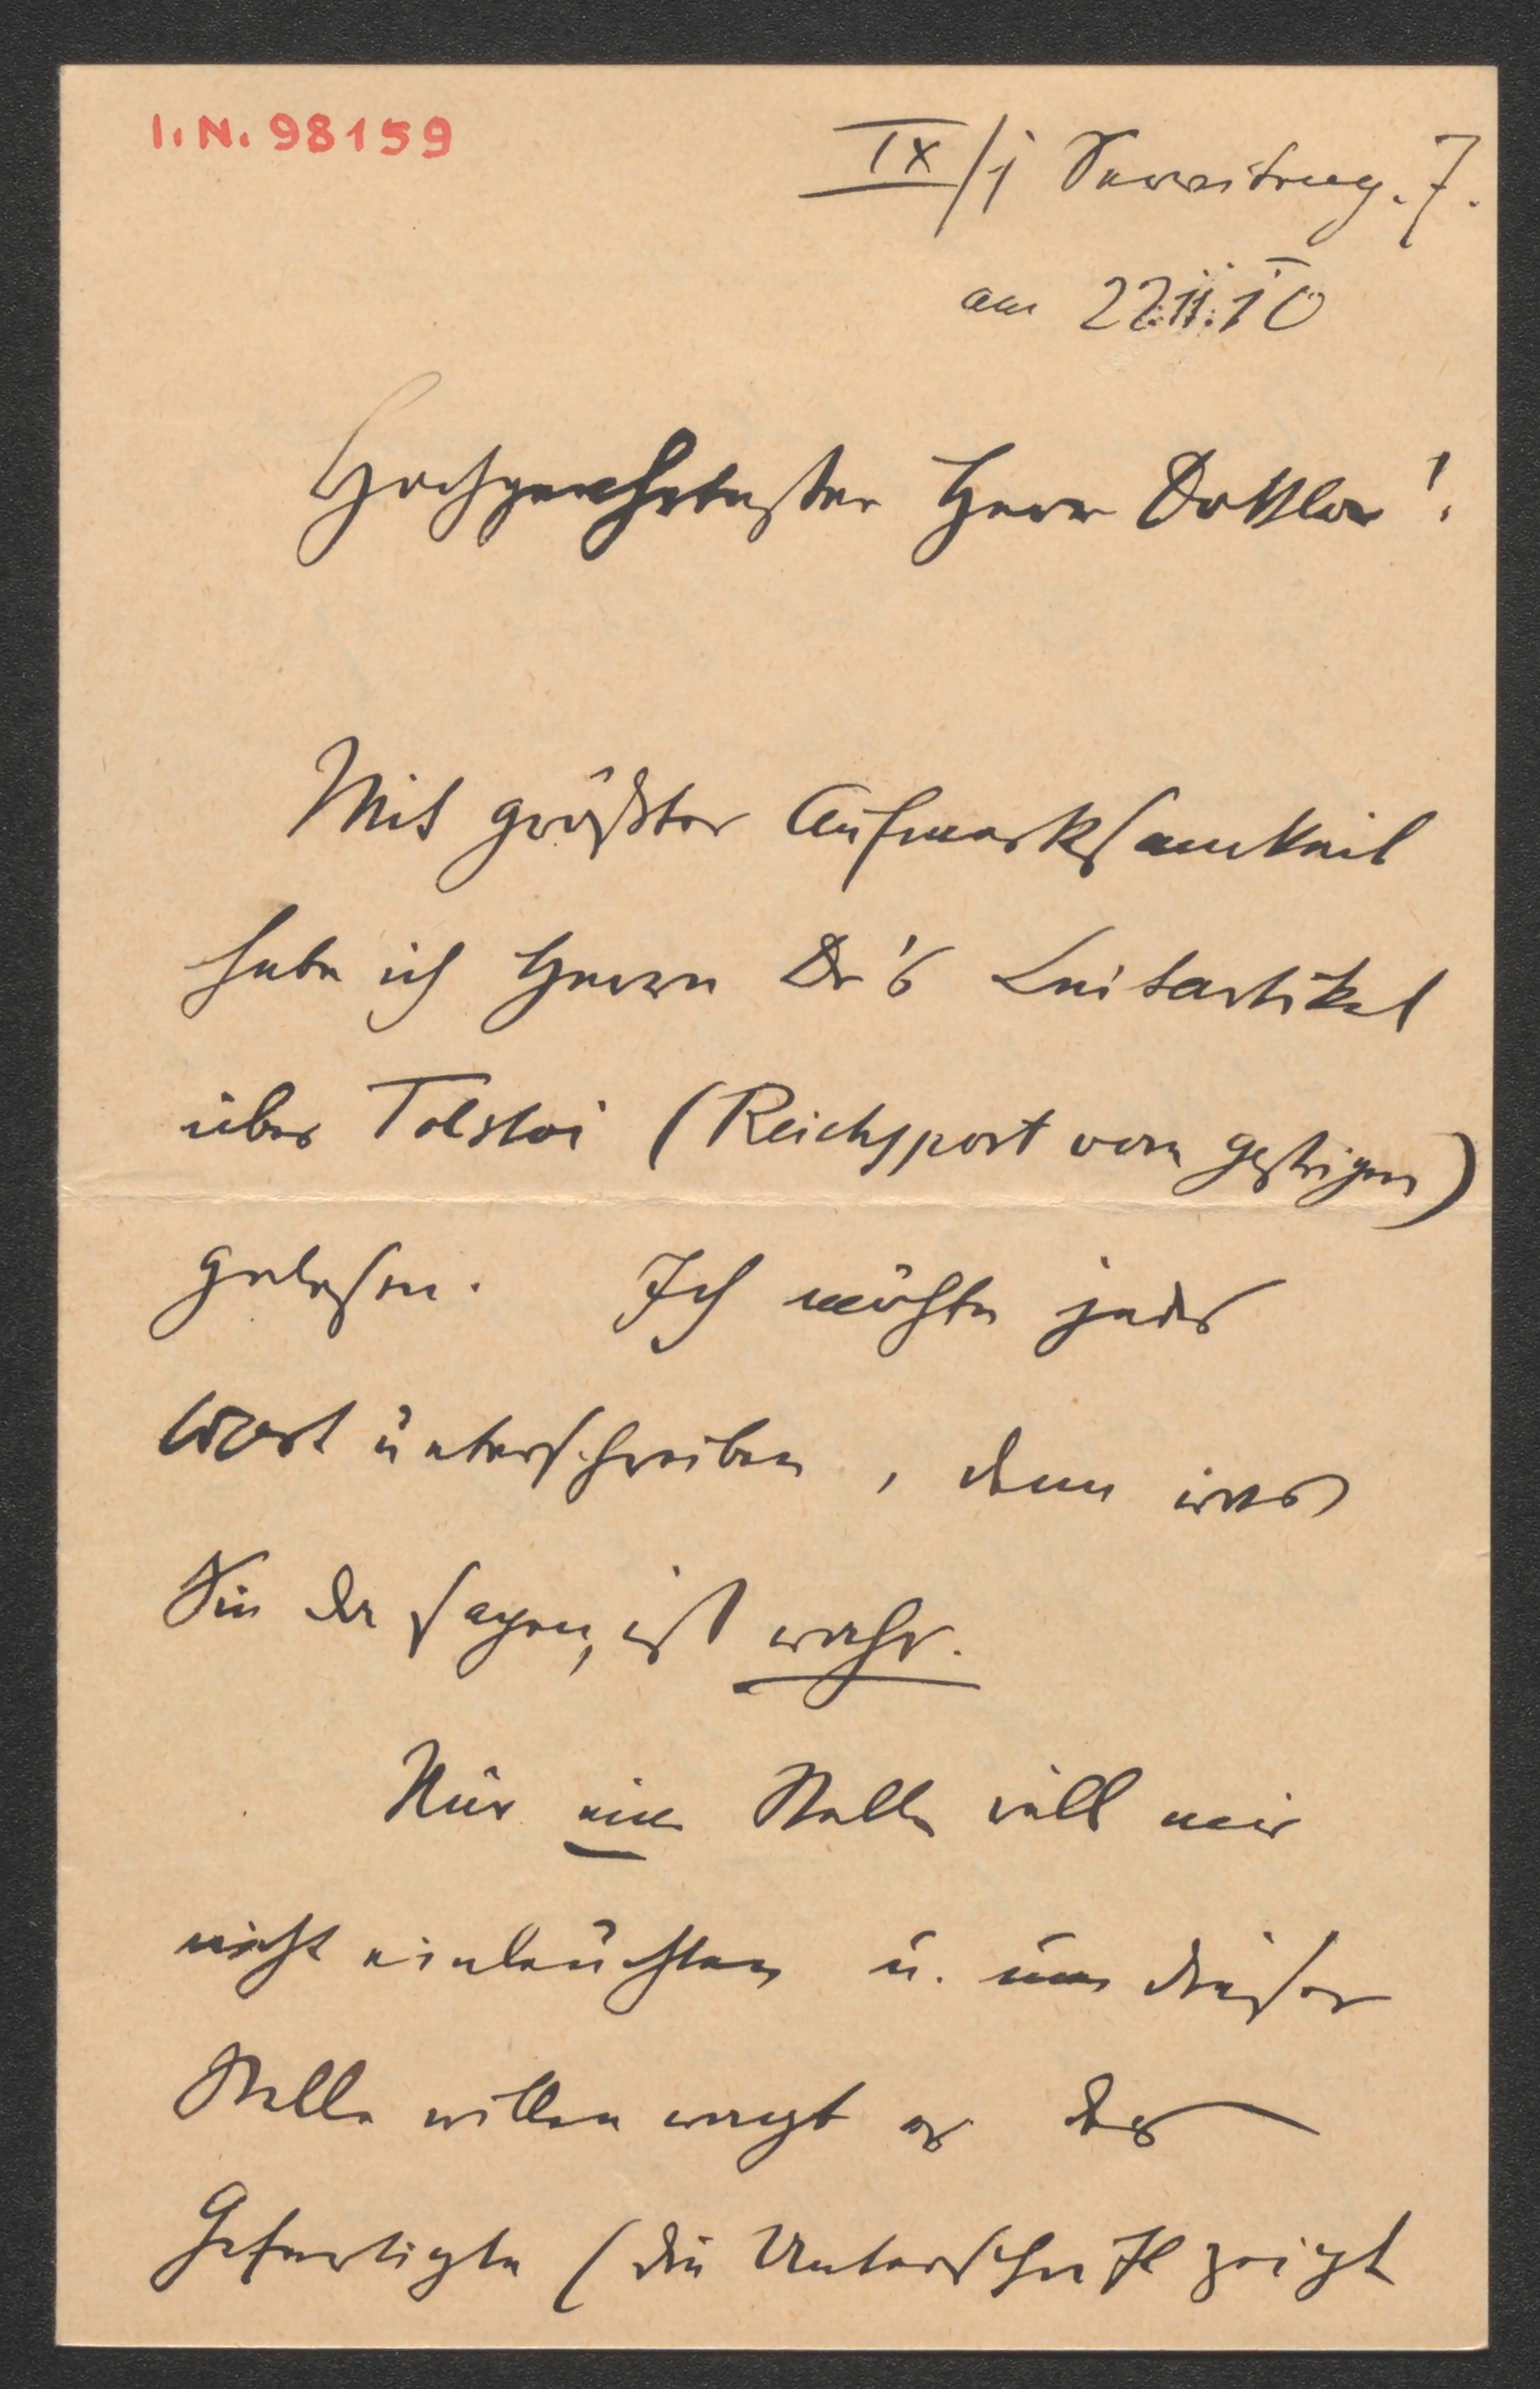 I. N. 98159
IX/1 Severing. 7.
am 22.11.10
Hochgeehrtester Herr Doktor!
Mit größter Aufmerksamkeit
habe ich Herrn Dr's Leitartikel
über Tolstoi (Reichspost vom gestrigen)
gelesen. Ich möchte jedes
Wort unterschreiben, denn was
Sie da sagen, ist wahr.
Nur eine Stelle will mir
nicht einleuchten u. um dieser
Stelle willen wagt es der
Gefertigte (die Unterschrift zeigt